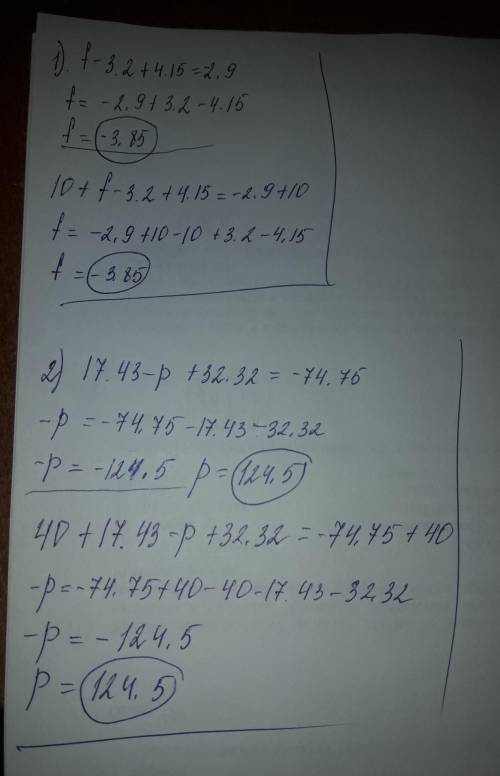 1). f-3.2+4.15=-2.9
f= -2.9+3.2-4.15
f= -3.85
10+f-3.2+4.15=-2.9+10
f= -2,9+10-10+3.2-4,15
f = -3.85
2) 17.43-p+32.32 = -74.75
-p = -74,75-17.43-32,32
-p = -124.5 p = 124.5
40+17.43-p+32,32=-74,75+40
-p=-74.75+40-40-17.43-32.32
-p = -124.5
p = 124.5